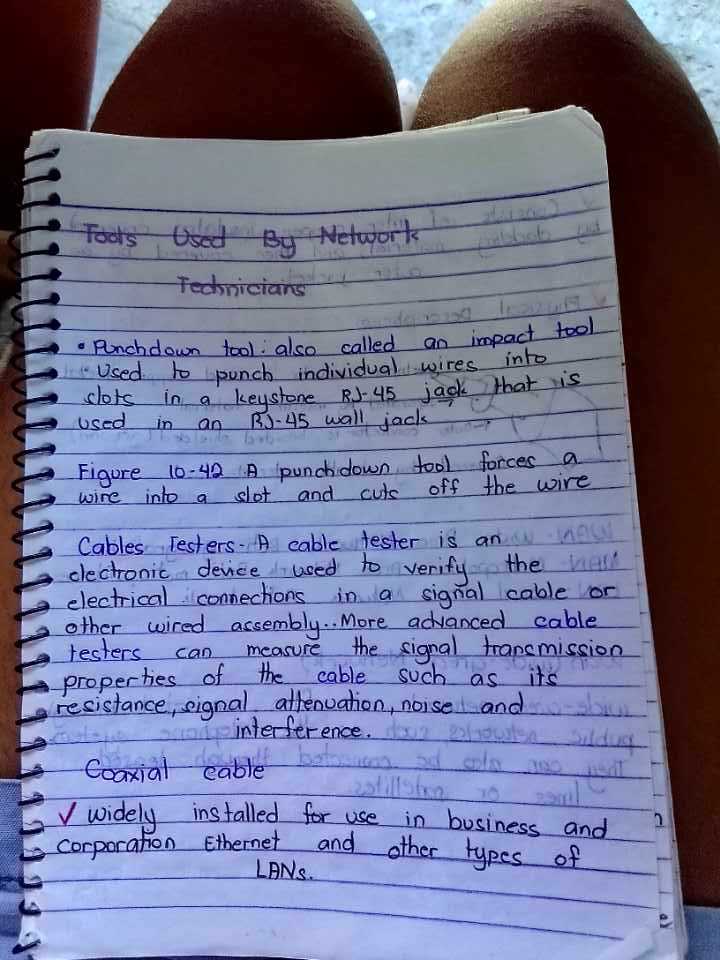 Tools Used By Network
Technicians
• Punchdown tool: also called an impact tool
• Used to punch individual wires into
slots in a keystone RJ-45 jack that is
used in an RJ-45 wall jack
Figure 10-42 A punchdown tool forces a
wire into a slot and cuts off the wire
Cables Testers- A cable tester is an
electronic device used to verify the
electrical connections in a signal cable or
other wired assembly.. More advanced cable
testers can measure the signal transmission
properties of the cable such as its
resistance, signal attenuation, noise and
interference.
Coaxial cable
✓ widely installed for use in business and
corporation Ethernet and other types of
LANs.